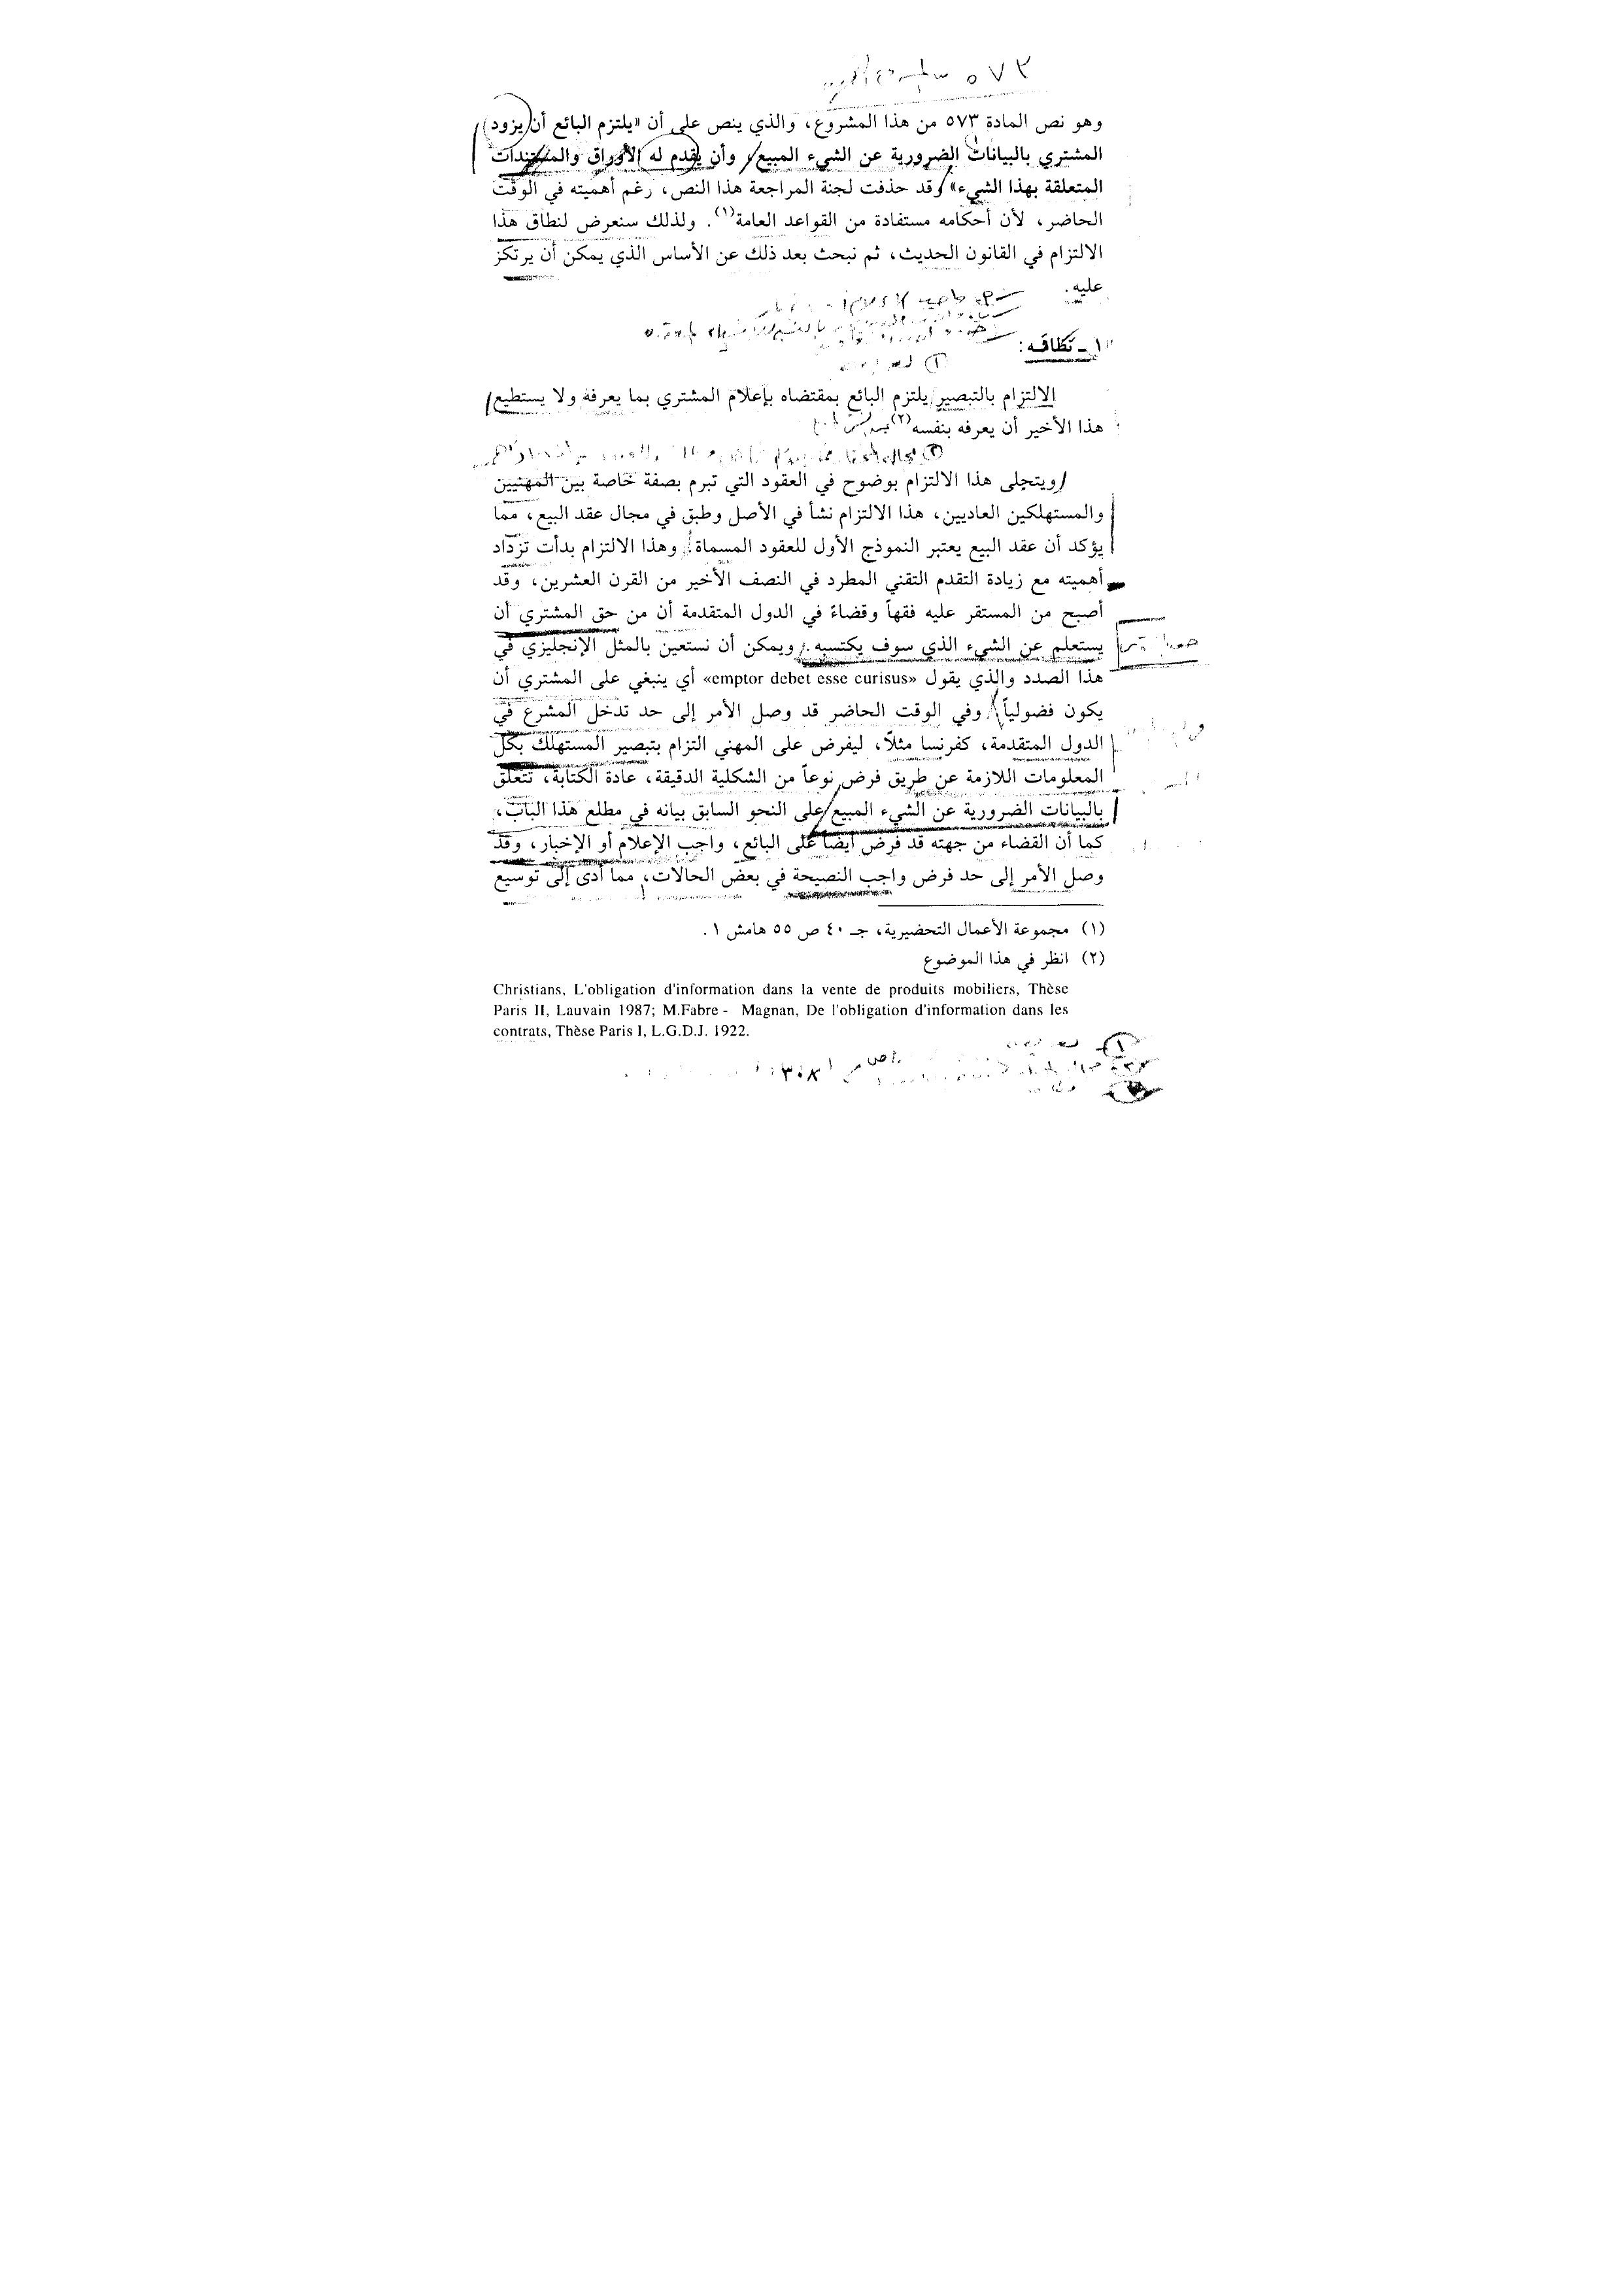 ٥٧٣
وهو نص المادة ٥٧٣ من هذا المشروع، والذي ينص على أن «يلتزم البائع أن يزود
المشتري بالبيانات الضرورية عن الشيء المبيع، وأن يقدم له الأوراق والمستندات
المتعلقة بهذا الشيء» وقد حذفت لجنة المراجعة هذا النص، رغم أهميته في الوقت
الحاضر، لأن أحكامه مستفادة من القواعد العامة(١). ولذلك سنعرض لنطاق هذا
الالتزام في القانون الحديث، ثم نبحث بعد ذلك عن الأساس الذي يمكن أن يرتكز
عليه.
١ - نطاقه:
الالتزام بالتبصير يلتزم البائع بمقتضاه بإعلام المشتري بما يعرفه ولا يستطيع
هذا الأخير أن يعرفه بنفسه(٢)
ويتجلى هذا الالتزام بوضوح في العقود التي تبرم بصفة خاصة بين المهنيين
والمستهلكين العاديين، هذا الالتزام نشأ في الأصل وطبق في مجال عقد البيع، مما
يؤكد أن عقد البيع يعتبر النموذج الأول للعقود المسماة. وهذا الالتزام بدأت تزداد
أهميته مع زيادة التقدم التقني المطرد في النصف الأخير من القرن العشرين، وقد
أصبح من المستقر عليه فقهاً وقضاءً في الدول المتقدمة أن من حق المشتري أن
يستعلم عن الشيء الذي سوف يكتسبه. ويمكن أن نستعين بالمثل الإنجليزي في
هذا الصدد والذي يقول «emptor debet esse curisus» أي ينبغي على المشتري أن
يكون فضولياً. وفي الوقت الحاضر قد وصل الأمر إلى حد تدخل المشرع في
الدول المتقدمة، كفرنسا مثلاً، ليفرض على المهني التزام بتبصير المستهلك بكل
المعلومات اللازمة عن طريق فرض نوعاً من الشكلية الدقيقة، عادة الكتابة، تتعلق
بالبيانات الضرورية عن الشيء المبيع على النحو السابق بيانه في مطلع هذا الباب،
كما أن القضاء من جهته قد فرض أيضاً على البائع، واجب الإعلام أو الإخبار، وقد
وصل الأمر إلى حد فرض واجب النصيحة في بعض الحالات، مما أدى إلى توسيع
(١) مجموعة الأعمال التحضيرية، جـ ٤٠ ص ٥٥ هامش ١.
(٢) انظر في هذا الموضوع
Christians, L'obligation d'information dans la vente de produits mobiliers, Thèse
Paris II, Lauvain 1987; M.Fabre - Magnan, De l'obligation d'information dans les
contrats, Thèse Paris I, L.G.D.J. 1922.